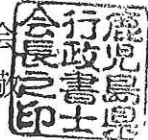 鹿児島県
行政書士
会長之印